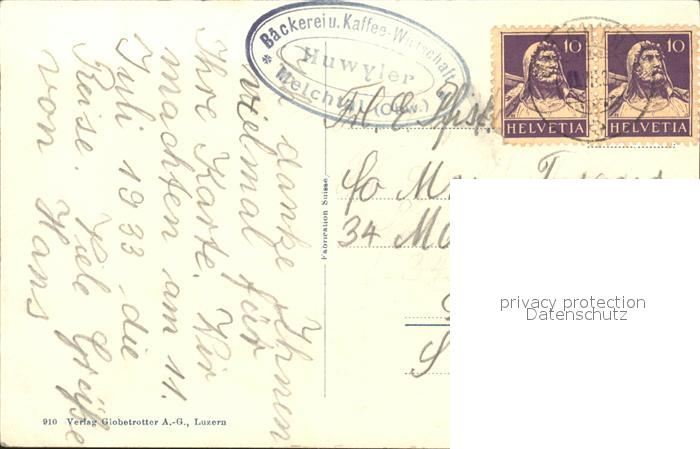 Bäckerei u. Kaffee-Wirtschaft
Huwyler
Melchtal (Obw.)
10
HELVETIA
10
HELVETIA
danke Ihnen
vielmal für
Ihre Karte. Wir
machten am 11.
Juli 1933 die
Reise. Viele Grüße
von Hans
Frl. E.
c/o
34
Fabrication Suisse
910 Verlag Globetrotter A.-G., Luzern
privacy protection
Datenschutz